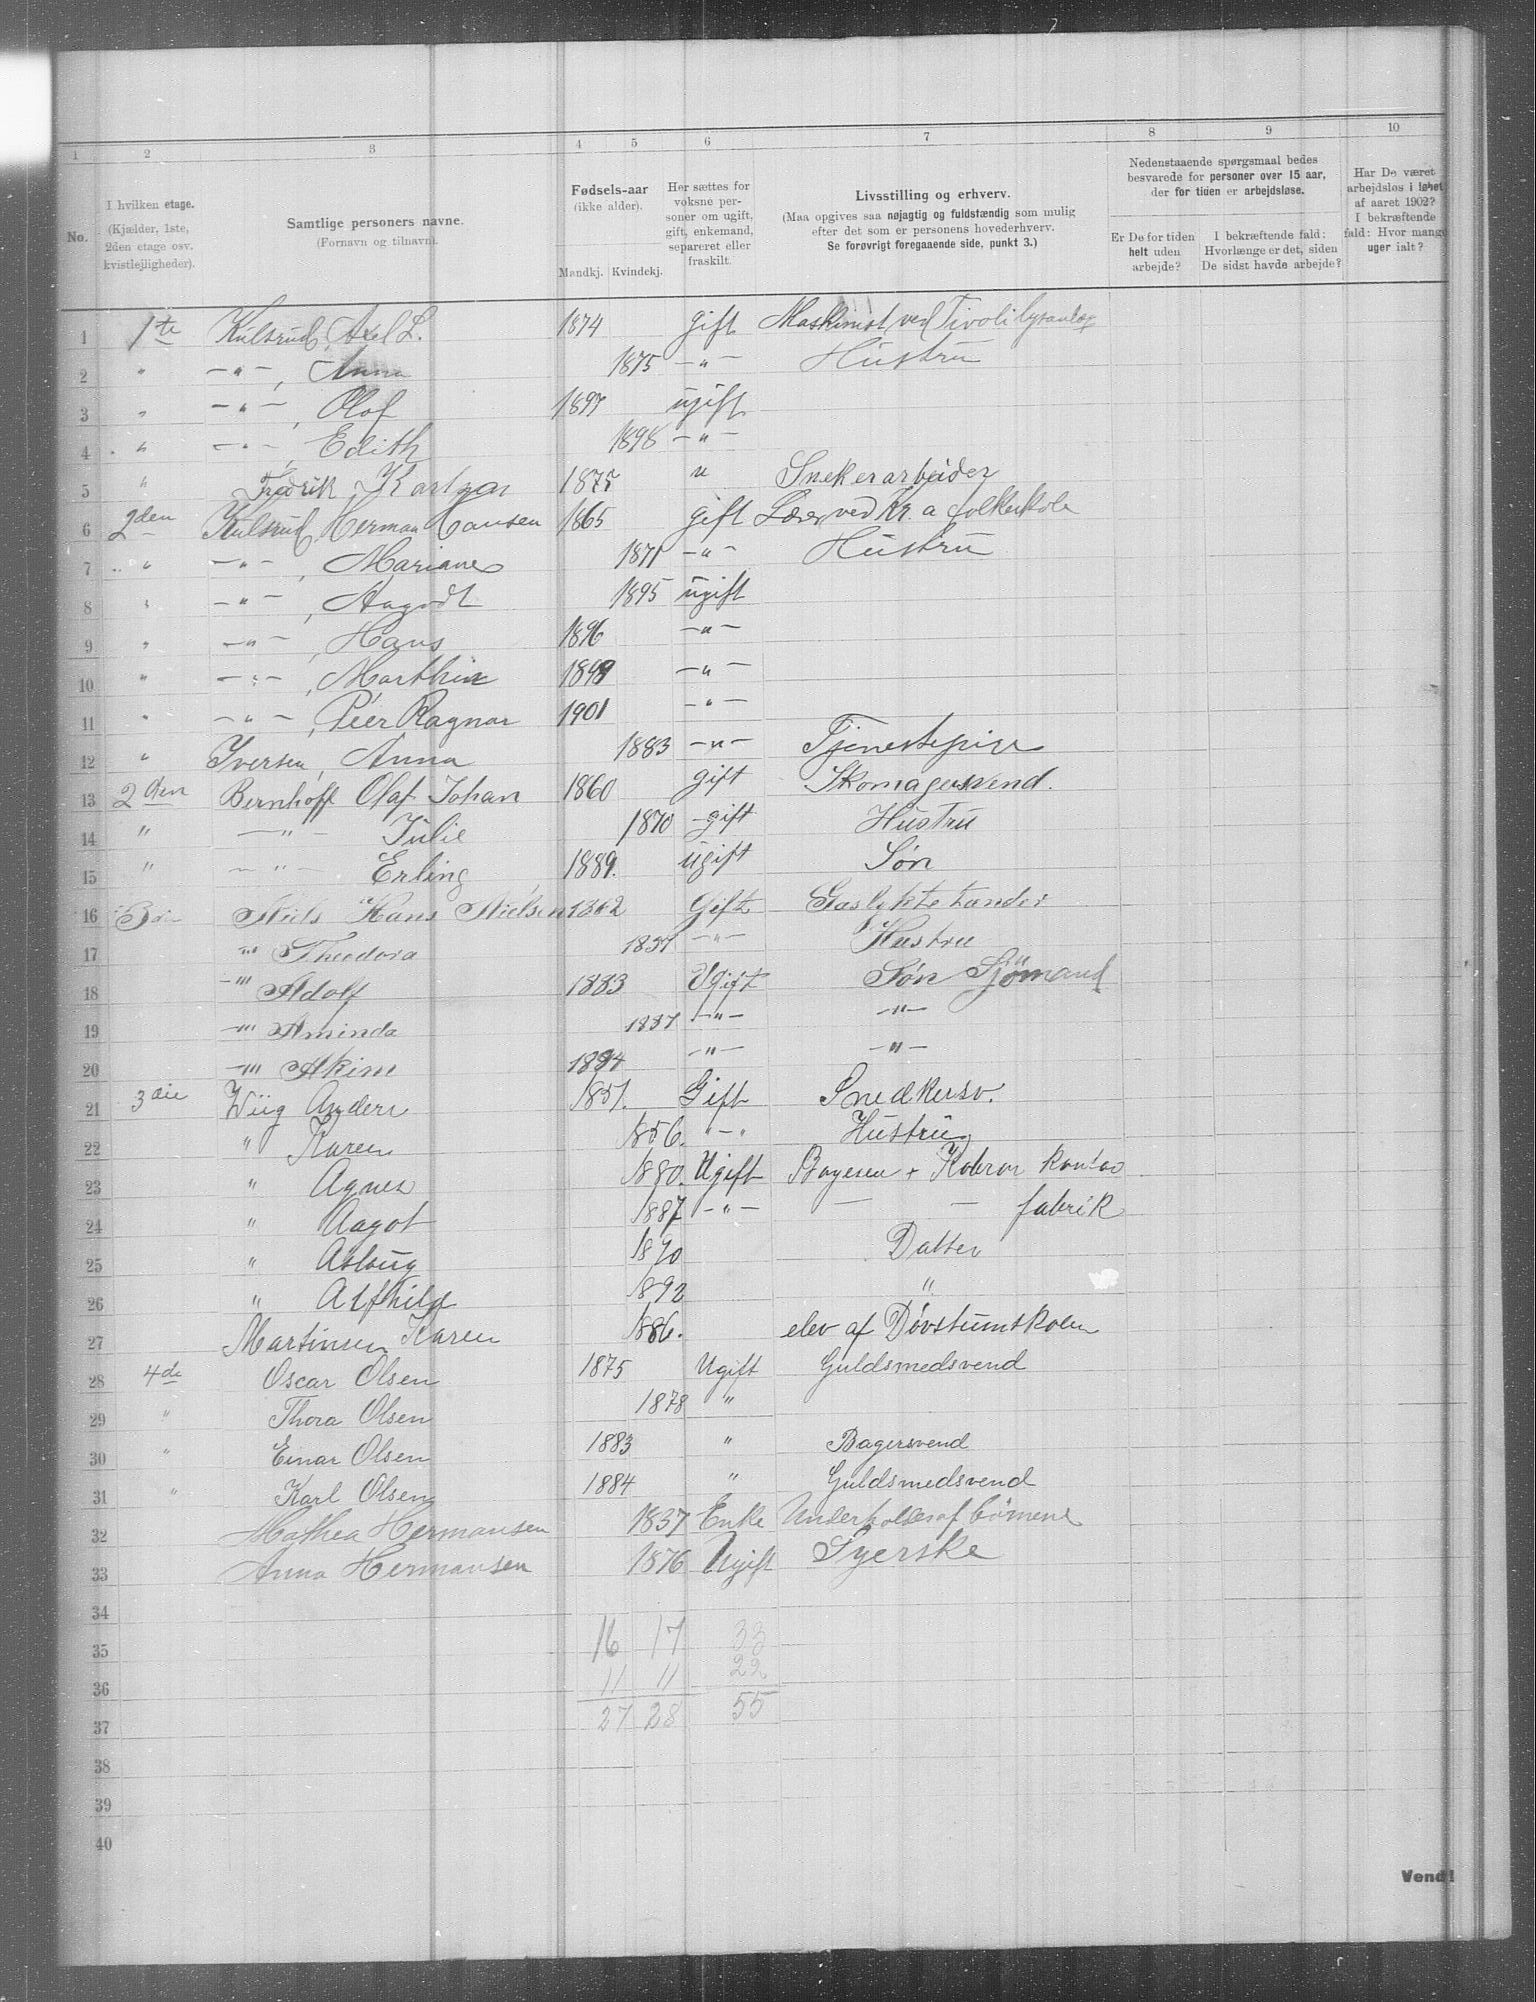 1 2 3 4 5 6 7 8 9 10
No.
I hvilken etage. (Kjælder, 1ste, 2den etage osv. kvistlejligheder).
Samtlige personers navne. (Fornavn og tilnavn).
Fødsels-aar (ikke alder). Mandkj. Kvindekj.
Her sættes for voksne personer om ugift, gift, enkemand, separeret eller fraskilt.
Livsstilling og erhverv. (Maa opgives saa nøjagtig og fuldstændig som mulig efter det som er personens hovederhverv. Se forøvrigt foregaaende side, punkt 3.)
Nedenstaaende spørgsmaal bedes besvarede for personer over 15 aar, der for tiden er arbejdsløse.
Er De for tiden helt uden arbejde?
I bekræftende fald: Hvorlænge er det, siden De sidst havde arbejde?
Har De været arbejdsløs i løbet af aaret 1902? I bekræftende fald: Hvor mange uger ialt?
1 1te Kulsrud, Axel L. 1874 gift Maskinist ved Tivoli lysanlæg
2 " —"—, Anna 1875 —"— Hustru
3 " —"—, Olaf 1897 ugift
4 " —"—, Edith 1898 —"—
5 " Fredrik 1875 " Snekerarbeider
6 2den Kulsrud, Herman Hansen 1865 gift Lærer ved Kr.a folkeskole
7 " —"—, Mariane 1871 —"— Hustru
8 " —"—, Aagodt 1895 ugift
9 " —"—, Hans 1896 —"—
10 " —"—, Marthin 1899 —"—
11 " —"—, Peer Ragnar 1901 —"—
12 " Iversen, Anna 1883 —"— Tjenestepige
13 2den Bernhoff Olaf Johan 1860 gift Skomagersvend.
14 " —"— Julie 1870 gift Hustru
15 " —"— Erling 1889. ugift Søn
16 3die Niels Hans Nielsen 1862 Gift Gaslygtetænder
17 —"— Theodora 1857 —"— Hustru
18 —"— Adolf 1883 Ugift Søn Sjömand
19 —"— Aminda 1887 —"— —"—
20 —"— Akim 1894 —"— —"—
21 3die Wiig Anders 1851. Gift Snedkersv.
22 " Karen 1856. "—" Hustru
23 " Agnes 1880. Ugift Bøyesen + kontor
24 " Aagot 1887 —"— — — fabrik
25 " Aslaug 1890 Datter
26 " Alfhild 1892 "
27 Martinsen Karen 1886. elev af Døvstumskolen
28 4de Oscar Olsen 1875 Ugift Guldsmedsvend
29 " Thora Olsen 1878 "
30 " Einar Olsen 1883 " Bagersvend
31 " Karl Olsen 1884 " Guldsmedsvend
32 Mathea Hermansen 1837 Enke Underholdes af börnene
33 Anna Hermansen 1876 Ugift Syerske
34
35 16 17 33
36 11 11 22
37 27 28 55
38
39
40
Vend!